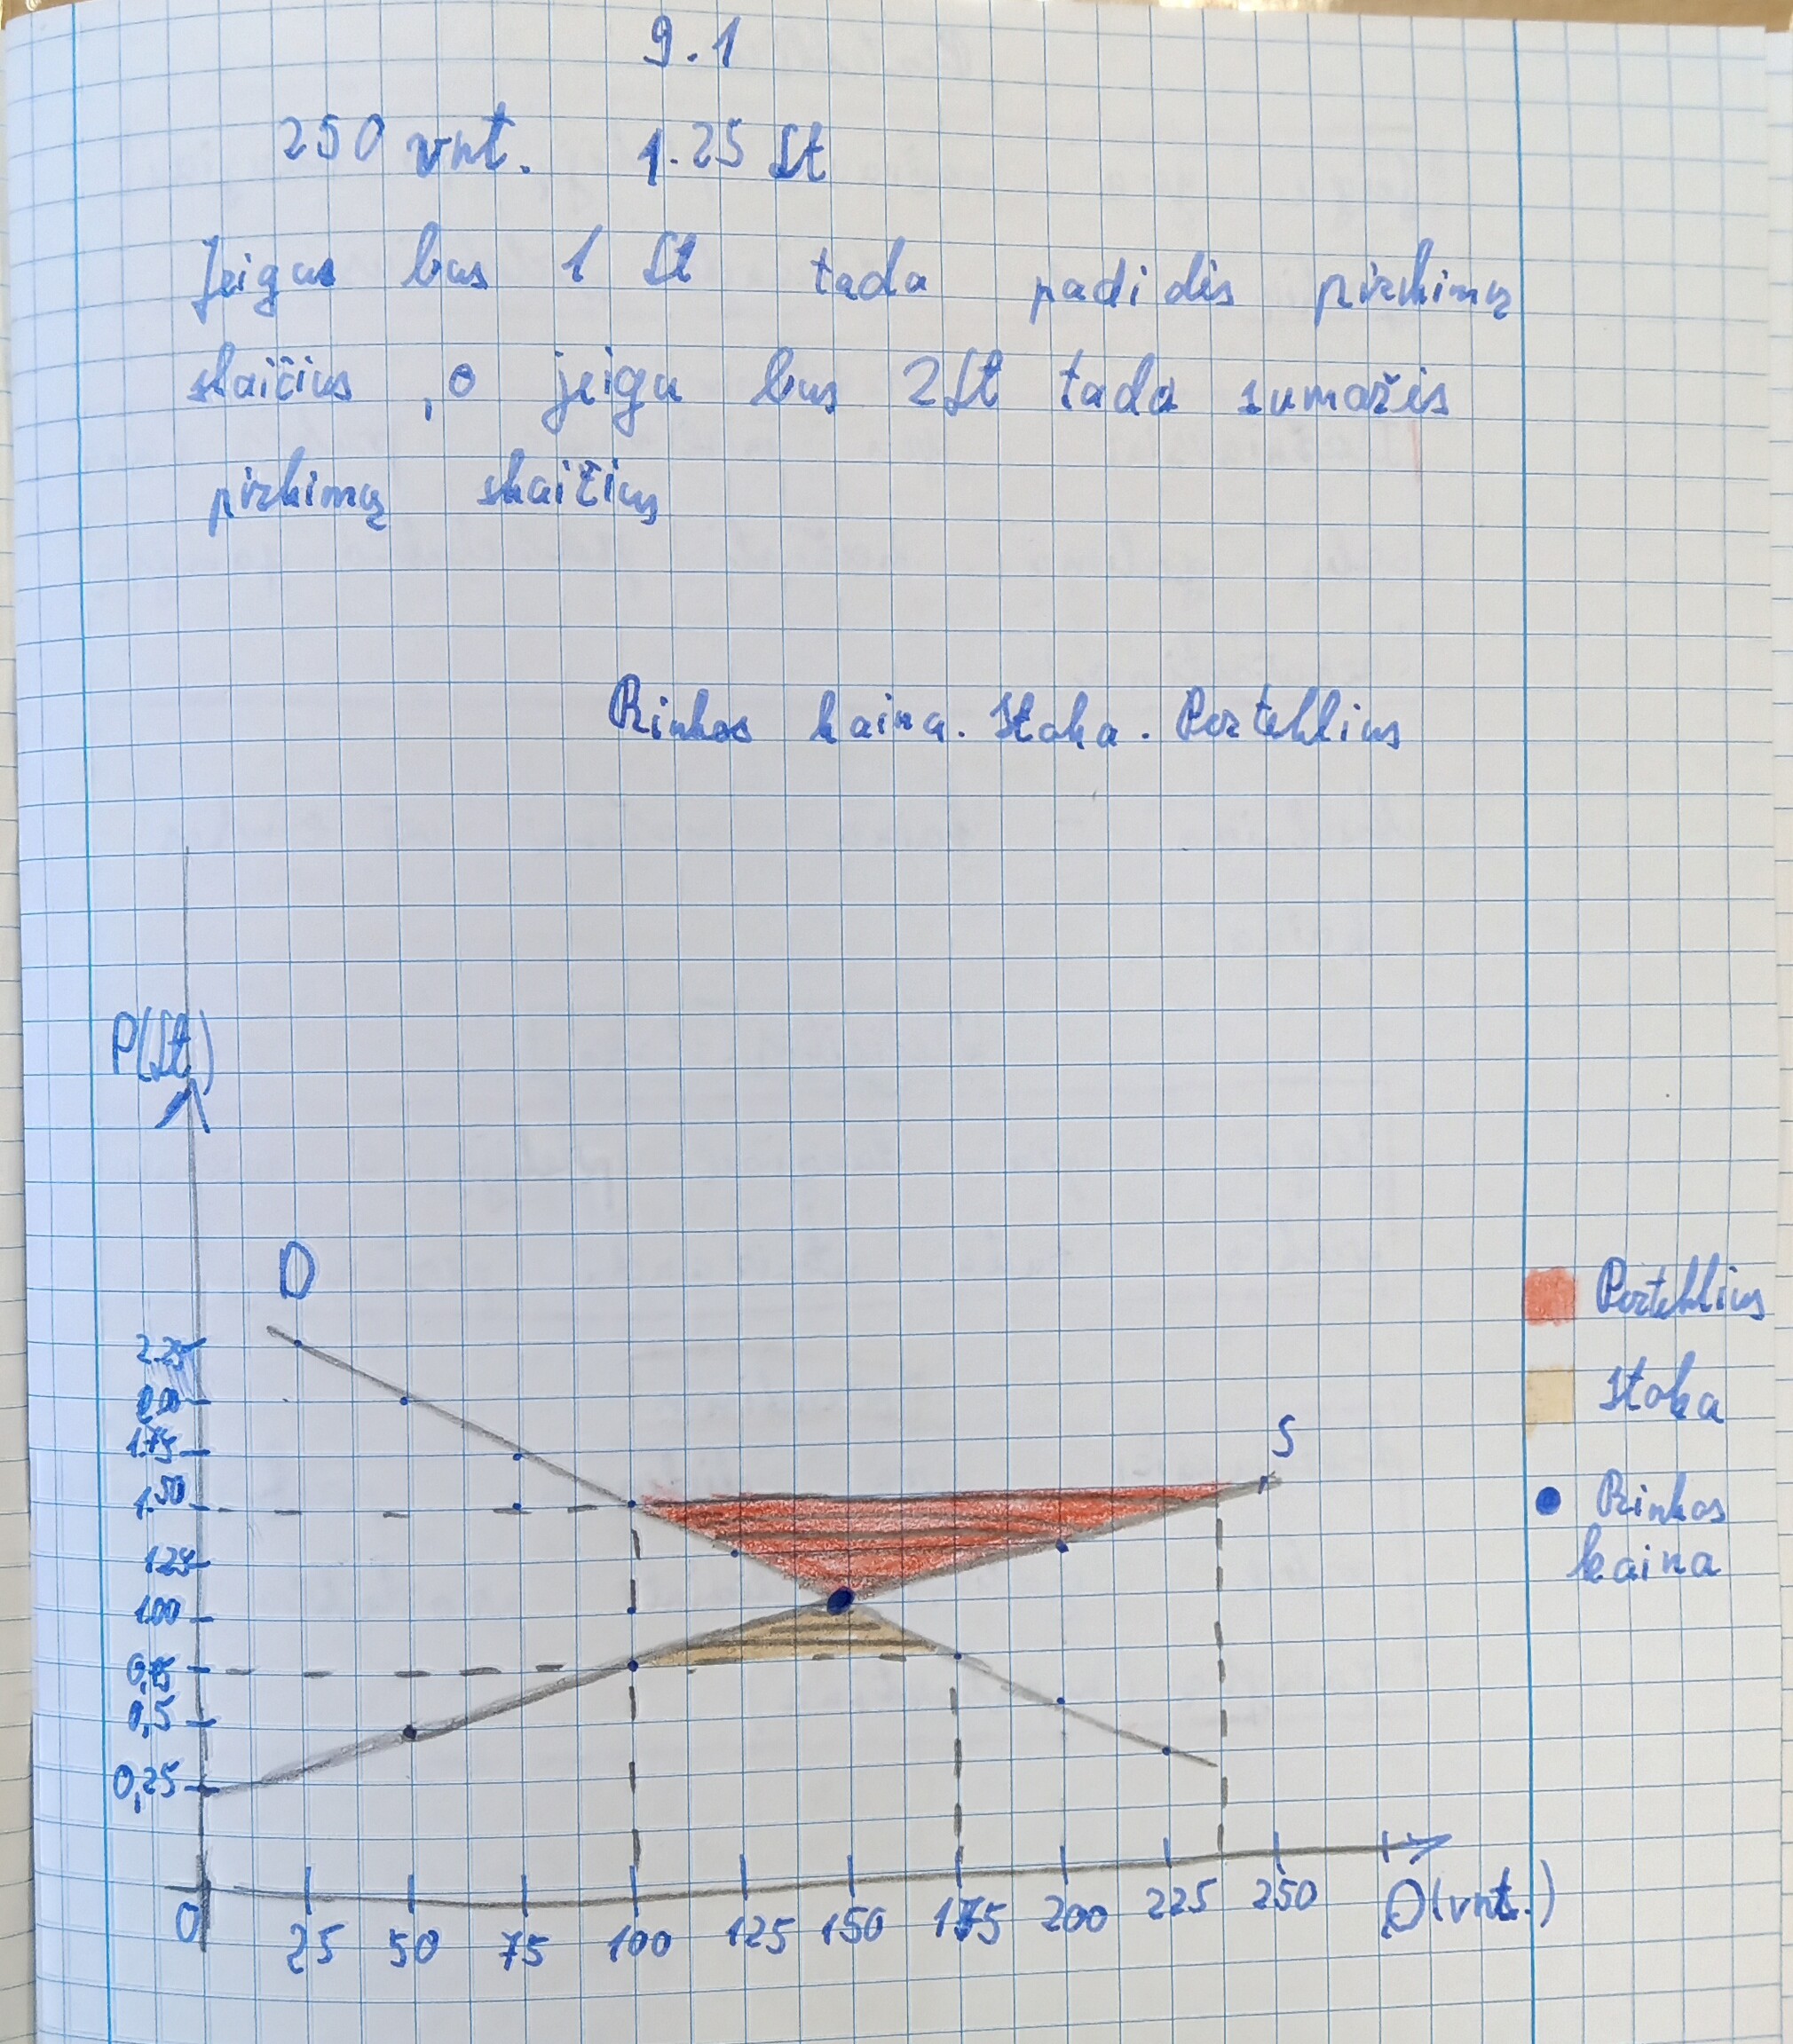 9.1
250 vnt. 1.25 Lt
Jeigu bus 1 Lt tada padidės pirkimų
skaičius , o jeigu bus 2 Lt tada sumažės
pirkimų skaičius
Rinkos kaina. Stoka. Perteklius
P(Lt)
D
2.25
1.75
1.50
1.25
1.00
0,5
0,25
0
S
25 50 75 100 125 150 175 200 225 250 Q(vnt.)
Perteklius
Stoka
Rinkos
kaina